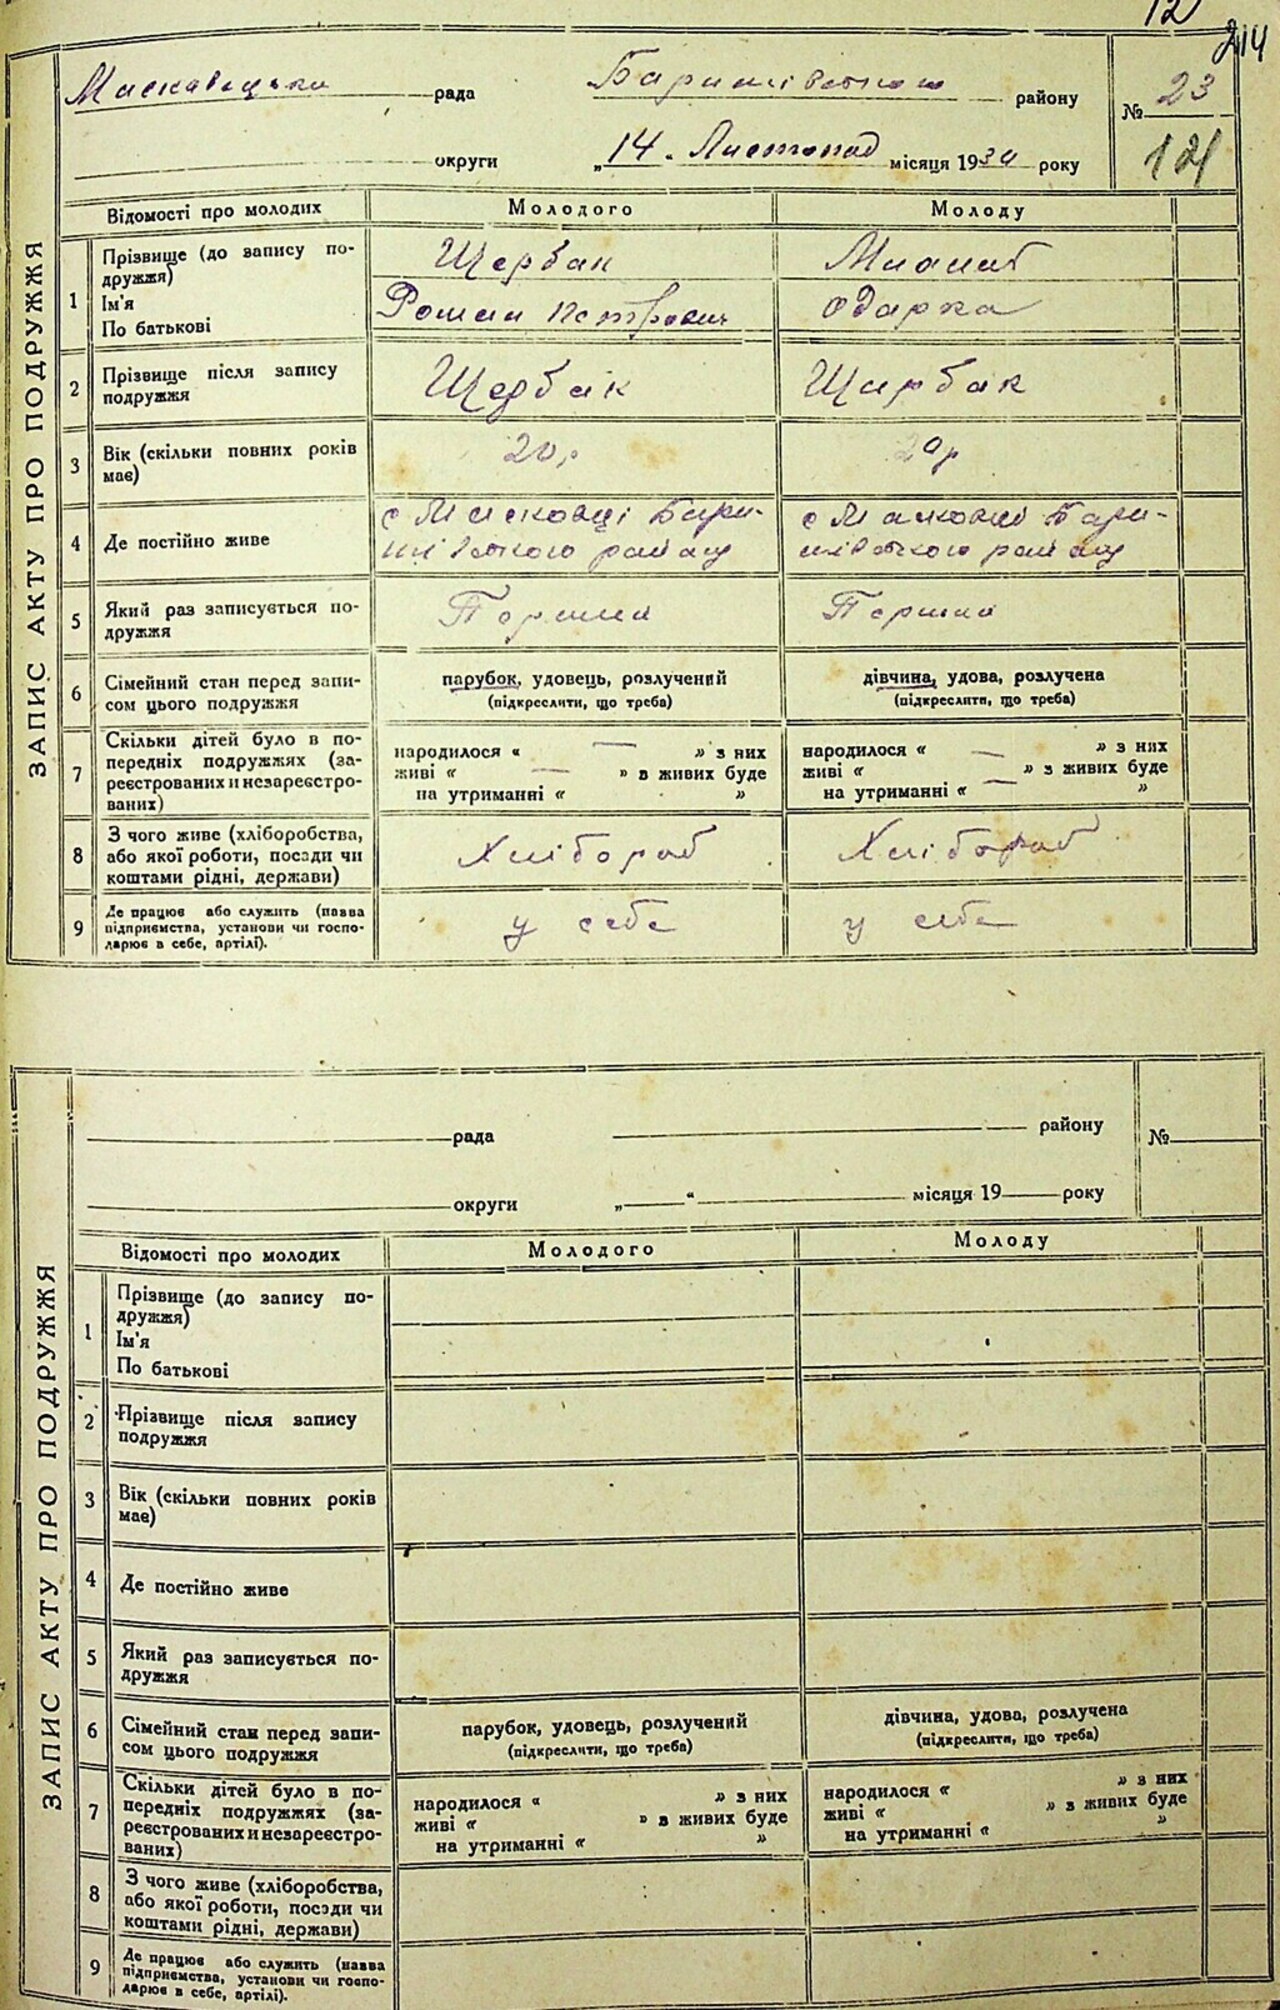 12
214
рада
району
№ 23
121
округи „14„ Листопад місяця 1930 року
ЗАПИС АКТУ ПРО ПОДРУЖЖЯ
Відомості про молодих Молодого Молоду
1 Прізвище (до запису по-
дружжя)
Ім'я
По батькові
Щербак
Роман Петрович
Одарка
2 Прізвище після запису
подружжя
Щербак Щарбак
3 Вік (скільки повних років
має)
20 р
4 Де постійно живе
5 Який раз записується по-
дружжя
Перший Перший
6 Сімейний стан перед запи-
сом цього подружжя
парубок, удовець, розлучений
(підкреслити, що треба)
дівчина, удова, розлучена
(підкреслити, що треба)
7 Скільки дітей було в по-
передніх подружжях (за-
реєстрованих и незареєстро-
ваних)
народилося « — » з них
живі « — » в живих буде
на утриманні « »
народилося « — » з них
живі « » з живих буде
на утриманні « — »
8 З чого живе (хліборобства,
або якої роботи, посади чи
коштами рідні, держави)
Хлібороб Хлібороб
9 Де працює або служить (назва
підприємства, установи чи госпо-
дарює в себе, артілі).
у себе у себе
рада району №
округи „ “ місяця 19 року
ЗАПИС АКТУ ПРО ПОДРУЖЖЯ
Відомості про молодих Молодого Молоду
1 Прізвище (до запису по-
дружжя)
Ім'я
По батькові
2 Прізвище після запису
подружжя
3 Вік (скільки повних років
має)
4 Де постійно живе
5 Який раз записується по-
дружжя
6 Сімейний стан перед запи-
сом цього подружжя
парубок, удовець, розлучений
(підкреслити, що треба)
дівчина, удова, розлучена
(підкреслити, що треба)
7 Скільки дітей було в по-
передніх подружжях (за-
реєстрованих и незареєстро-
ваних)
народилося « » з них
живі « » в живих буде
на утриманні « »
народилося « » з них
живі « » з живих буде
на утриманні « »
8 З чого живе (хліборобства,
або якої роботи, посади чи
коштами рідні, держави)
9 Де працює або служить (назва
підприємства, установи чи госпо-
дарює в себе, артілі).